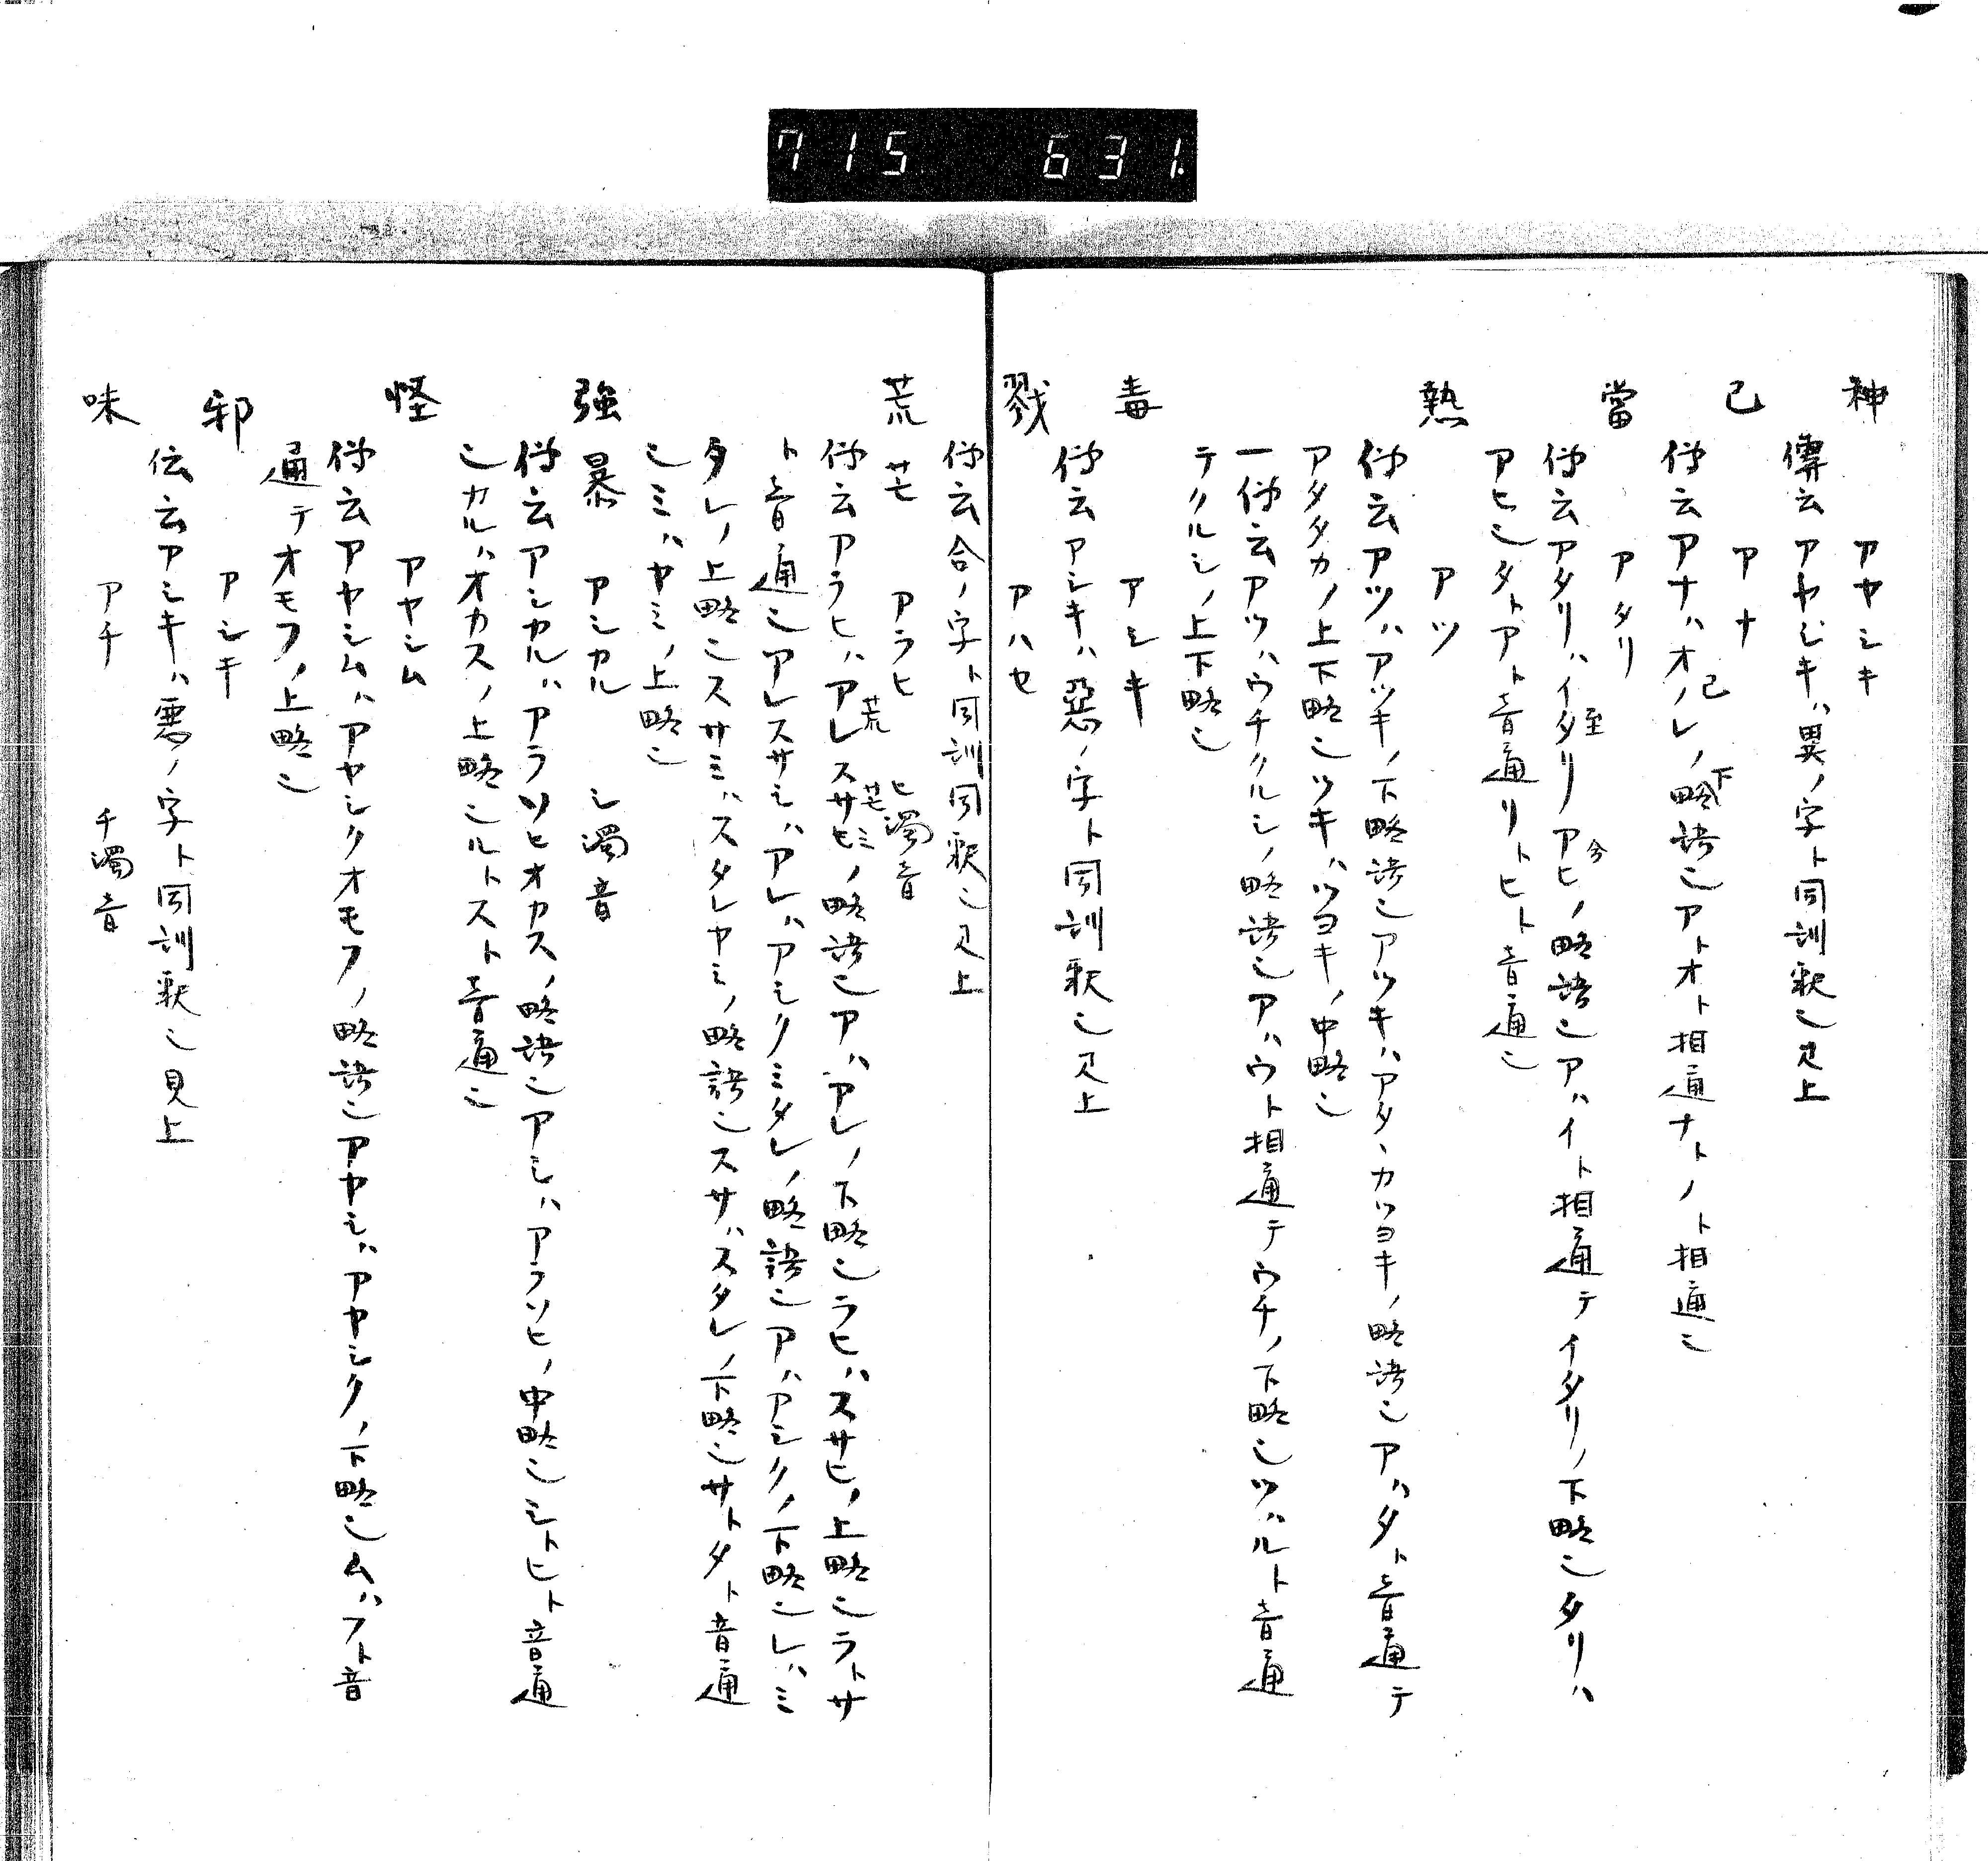 715 631
神 アヤシキ
傳云アヤシキハ異ノ字ト同訓釈也見上
己 アナ
傳云アナハオノレ己ノ下略語也アトオト相通ナトノト相通也
當 アタリ
傳云アタリハイタリ至アヒ合ノ略語也アハイト相通テイタリノ下略也タリハ
アヒ也タトアト音通リトヒト音通也
熱 アツ
傳云アツハアツキノ下略語也アツキハアタヽカツヨキノ略語也アハタト音通テ
アタタカノ上下略也ツキハツヨキノ中略也
一傳云アツハウチクルシノ略語也アハウト相通テウチノ下略也ツハルト音通
テクルシノ上下略也
毒 アシキ
傳云アシキハ惡ノ字ト同訓釈也見上
戮 アハセ
傳云合ノ字ト同訓同釈也見上
荒芒 アラヒ ヒ濁音
傳云アラヒハアレ荒スサミ芒ノ略語也アハアレノ下略也ラヒハスサヒノ上略也ラトサ
ト音通也アレスサミハアレハアシクミタレノ略語也アハアシクノ下略也レハミ
タレノ上略也スサミハスタレヤミノ略語也スサハスタレノ下略也サトタト音通
也ミハヤミノ上略也
強暴 アシカル シ濁音
傳云アシカルハアラソヒオカスノ略語也アシハアラソヒノ中略也シトヒト音通
也カルハオカスノ上略也ルトスト音通也
怪 アヤシム
傳云アヤシムハアヤシクオモフノ略語也アヤシハアヤシクノ下略也ムハフト音
通テオモフノ上略也
邪 アシキ
伝云アシキハ悪ノ字ト同訓釈也見上
味 アチ チ濁音